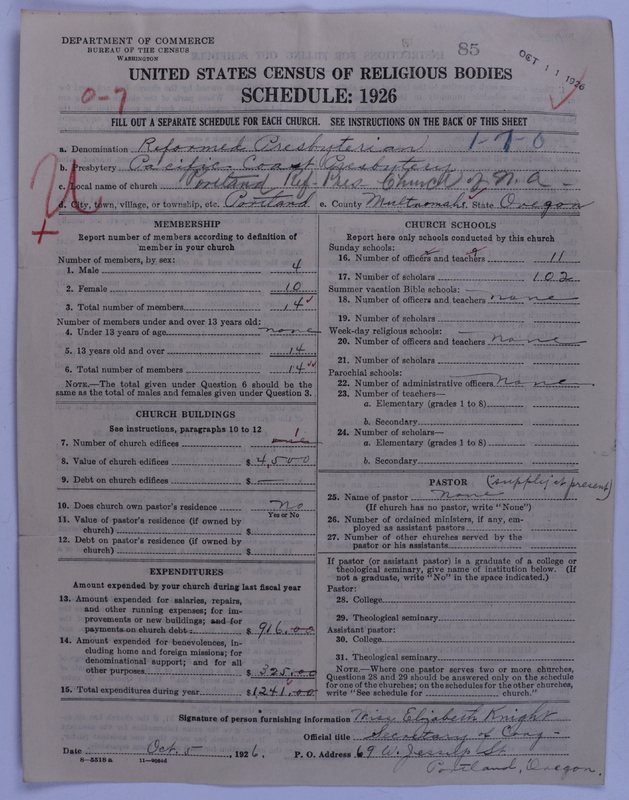 DEPARTMENT OF COMMERCE
BUREAU OF THE CENSUS
WASHINGTON
85
OCT 11 1926
UNITED STATES CENSUS OF RELIGIOUS BODIES
SCHEDULE: 1926
0-7
FILL OUT A SEPARATE SCHEDULE FOR EACH CHURCH. SEE INSTRUCTIONS ON THE BACK OF THIS SHEET
a. Denomination Reformed Presbyterian 1-7-0
b. Presbytery Pacific Coast Presbytery
c. Local name of church Portland Ref. Pres. Church of N. A.
d. City, town, village, or township, etc. Portland e. County Multnomah State Oregon
MEMBERSHIP
Report number of members according to definition of member in your church
Number of members, by sex:
1. Male 4
2. Female 10
3. Total number of members 14
Number of members under and over 13 years old:
4. Under 13 years of age none
5. 13 years old and over 14
6. Total number of members 14
NOTE.—The total given under Question 6 should be
same as the total of males and females given under Question 3.
CHURCH BUILDINGS
See instructions, paragraphs 10 to 12
7. Number of church edifices one 1
8. Value of church edifices $ 4,500
9. Debt on church edifices $ —
10. Does church own pastor's residence No
Yes or No
11. Value of pastor's residence (if owned by
church) $
12. Debt on pastor's residence (if owned by
church) $
EXPENDITURES
Amount expended by your church during last fiscal year
13. Amount expended for salaries, repairs,
and other running expenses; for im-
provements or new buildings; and for
payments on church debt $ 916.00
14. Amount expended for benevolences, in-
cluding home and foreign missions; for
denominational support; and for all
other purposes $ 325.00
15. Total expenditures during year $ 1241.00
CHURCH SCHOOLS
Report here only schools conducted by this church
Sunday schools:
16. Number of officers and teachers 11
17. Number of scholars 102
Summer vacation Bible schools:
18. Number of officers and teachers none
19. Number of scholars
Week-day religious schools:
20. Number of officers and teachers none
21. Number of scholars
Parochial schools:
22. Number of administrative officers none
23. Number of teachers—
a. Elementary (grades 1 to 8)
b. Secondary
24. Number of scholars—
a. Elementary (grades 1 to 8)
b. Secondary
PASTOR (supply at present)
25. Name of pastor None
(If church has no pastor, write "None")
26. Number of ordained ministers, if any, em-
ployed as assistant pastors
27. Number of other churches served by the
pastor or his assistants
If pastor (or assistant pastor) is a graduate of a college or
theological seminary, give name of institution below. (If
not a graduate, write "No" in the space indicated.)
Pastor:
28. College
29. Theological seminary
Assistant pastor:
30. College
31. Theological seminary
NOTE.—Where one pastor serves two or more churches,
Questions 28 and 29 should be answered only on the schedule
for one of the churches; on the schedules for the other churches,
write "See schedule for church."
Signature of person furnishing information Miss Elizabeth Knight
Official title Secretary of Cong-
Date Oct. 5 1926. P. O. Address 69 W. Jessup St.
8-5518 a
Portland, Oregon.